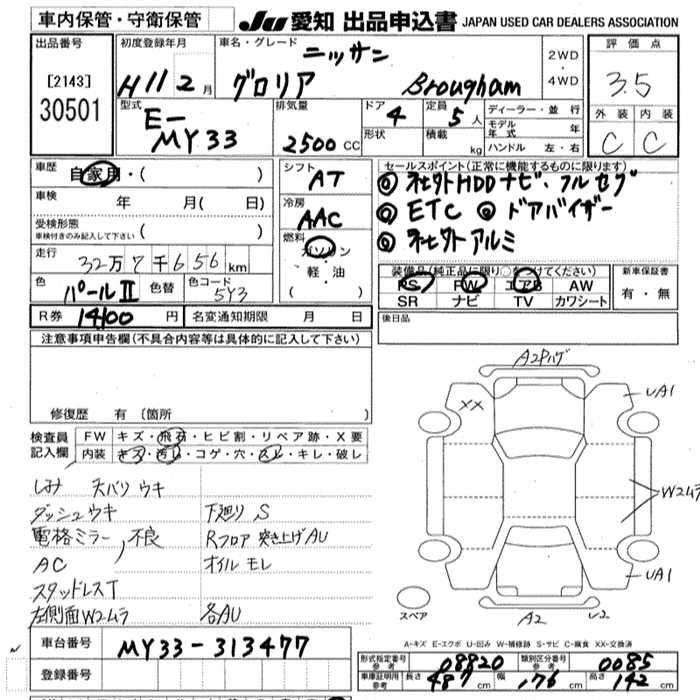 車内保管・守衛保管 JU 愛知 出品申込書 JAPAN USED CAR DEALERS ASSOCIATION
出品番号 初度登録年月 車名・グレード ニッサン 2WD・4WD 評価点
[2143] H11 2月 グロリア Brougham 3.5
30501 型式 E-MY33 排気量 2500CC ドア 4 形状 定員 5人 積載 kg ディーラー・並行 モデル年式 年 ハンドル 左・右 外装 C 内装 C
車歴 自家用・( ) シフト AT セールスポイント(正常に機能するものに限ります)
車検 年 月( 日) 冷房 AAC ◎社外HDDナビ・フルセグ
受検形態 車検付きのみ記入して下さい ( ) 燃料 ガソリン 軽・油 ( ) ◎ETC ◎ドアバイザー
走行 32万7千656km ◎社外アルミ
色 パールⅡ 色替 色コード 5Y3 装備品(純正品に限り○をつけてください) 新車保証書
PS FW エアB AW 有・無
SR ナビ TV カワシート
R券 14100円 名変通知期限 月 日 後日品
注意事項申告欄(不具合内容等は具体的に記入して下さい)
修復歴 有 (箇所 )
検査員記入欄 FW キズ・飛石・ヒビ割・リペア跡・X要
内装 キズ・汚れ・コゲ・穴・スレ・キレ・破レ
しみ 天バリウキ
ダッシュウキ 下廻りS
電格ミラー、不良 Rフロア突き上げAU
AC オイルモレ
スタッドレスT
左側面W2ムラ 各AU
A2Pハゲ
XX UA1
W2ムラ
UA1
スペア A2
A-キズ E-エクボ U-凹み W-補修跡 S-サビ C-腐食 XX-交換済
車台番号 MY33-313477
登録番号
形式指定番号 参考 08820 類別区分番号 参考 0085
車庫証明用 参考 長さ 487cm 幅 176cm 高さ 142cm